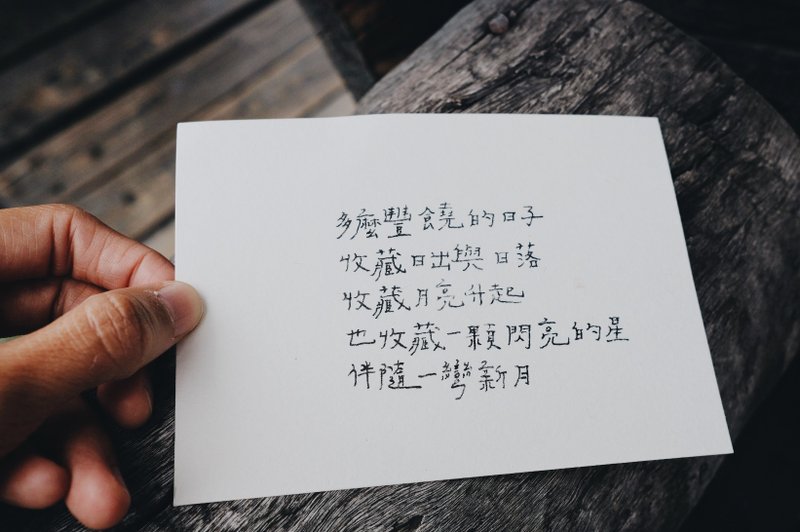 多麼豐饒的日子
收藏日出與日落
收藏月亮升起
也收藏一顆閃亮的星
伴隨一彎新月